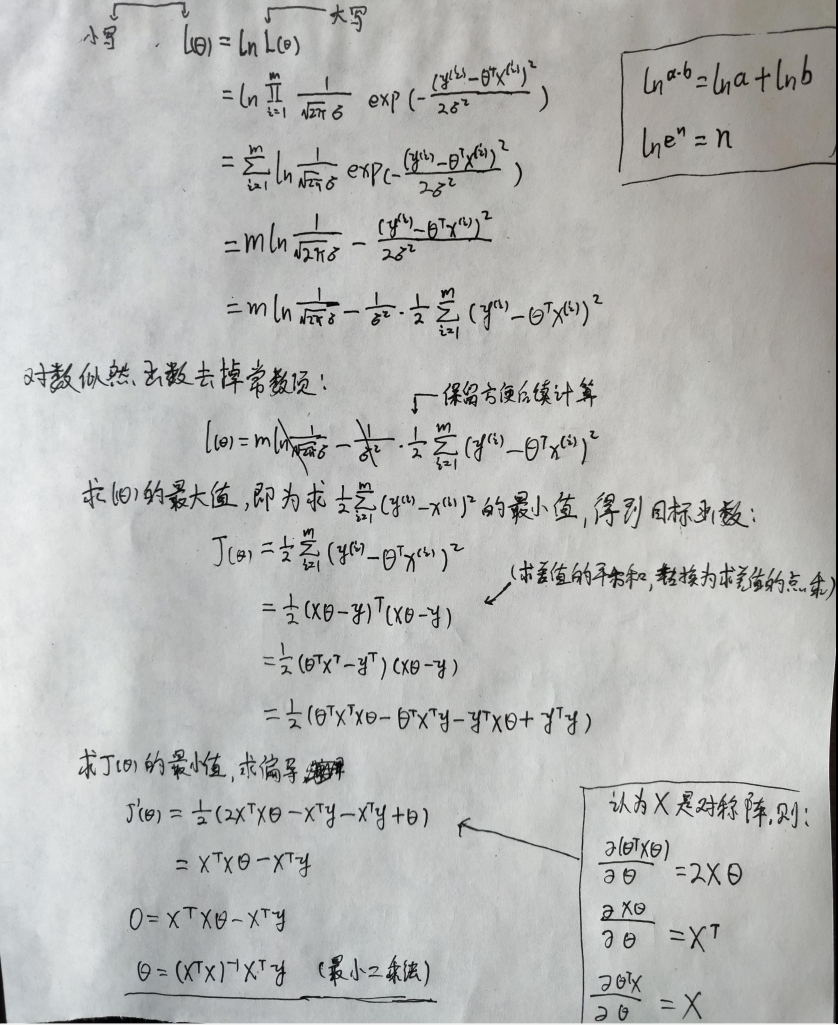 小写 大写
l(θ) = ln L(θ)
= ln ∏_{i=1}^{m} \frac{1}{\sqrt{2π}σ} exp(-\frac{(y^{(i)}-θ^T x^{(i)})^2}{2σ^2})
= ∑_{i=1}^{m} ln \frac{1}{\sqrt{2π}σ} exp(-\frac{(y^{(i)}-θ^T x^{(i)})^2}{2σ^2})
= m ln \frac{1}{\sqrt{2π}σ} - \frac{(y^{(i)}-θ^T x^{(i)})^2}{2σ^2}
= m ln \frac{1}{\sqrt{2π}σ} - \frac{1}{σ^2} · \frac{1}{2} ∑_{i=1}^{m} (y^{(i)} - θ^T x^{(i)})^2
ln^{a·b} = ln a + ln b
ln e^n = n
对数似然函数去掉常数项:
保留方便后续计算
l(θ) = m ln \frac{1}{\sqrt{2π}σ} - \frac{1}{σ^2} · \frac{1}{2} ∑_{i=1}^{m} (y^{(i)} - θ^T x^{(i)})^2
求l(θ)的最大值,即为求 \frac{1}{2} ∑_{i=1}^{m} (y^{(i)} - x^{(i)})^2 的最小值,得到目标函数:
J(θ) = \frac{1}{2} ∑_{i=1}^{m} (y^{(i)} - θ^T x^{(i)})^2
(求差值的平方和,转换为求差值的点乘)
= \frac{1}{2} (Xθ - y)^T (Xθ - y)
= \frac{1}{2} (θ^T X^T - y^T) (Xθ - y)
= \frac{1}{2} (θ^T X^T Xθ - θ^T X^T y - y^T Xθ + y^T y)
求J(θ)的最小值,求偏导
J'(θ) = \frac{1}{2} (2X^T Xθ - X^T y - X^T y + θ)
= X^T Xθ - X^T y
0 = X^T Xθ - X^T y
θ = (X^T X)^{-1} X^T y (最小二乘法)
认为X是对称阵,则:
\frac{∂(θ^T Xθ)}{∂θ} = 2Xθ
\frac{∂Xθ}{∂θ} = X^T
\frac{∂θ^T X}{∂θ} = X